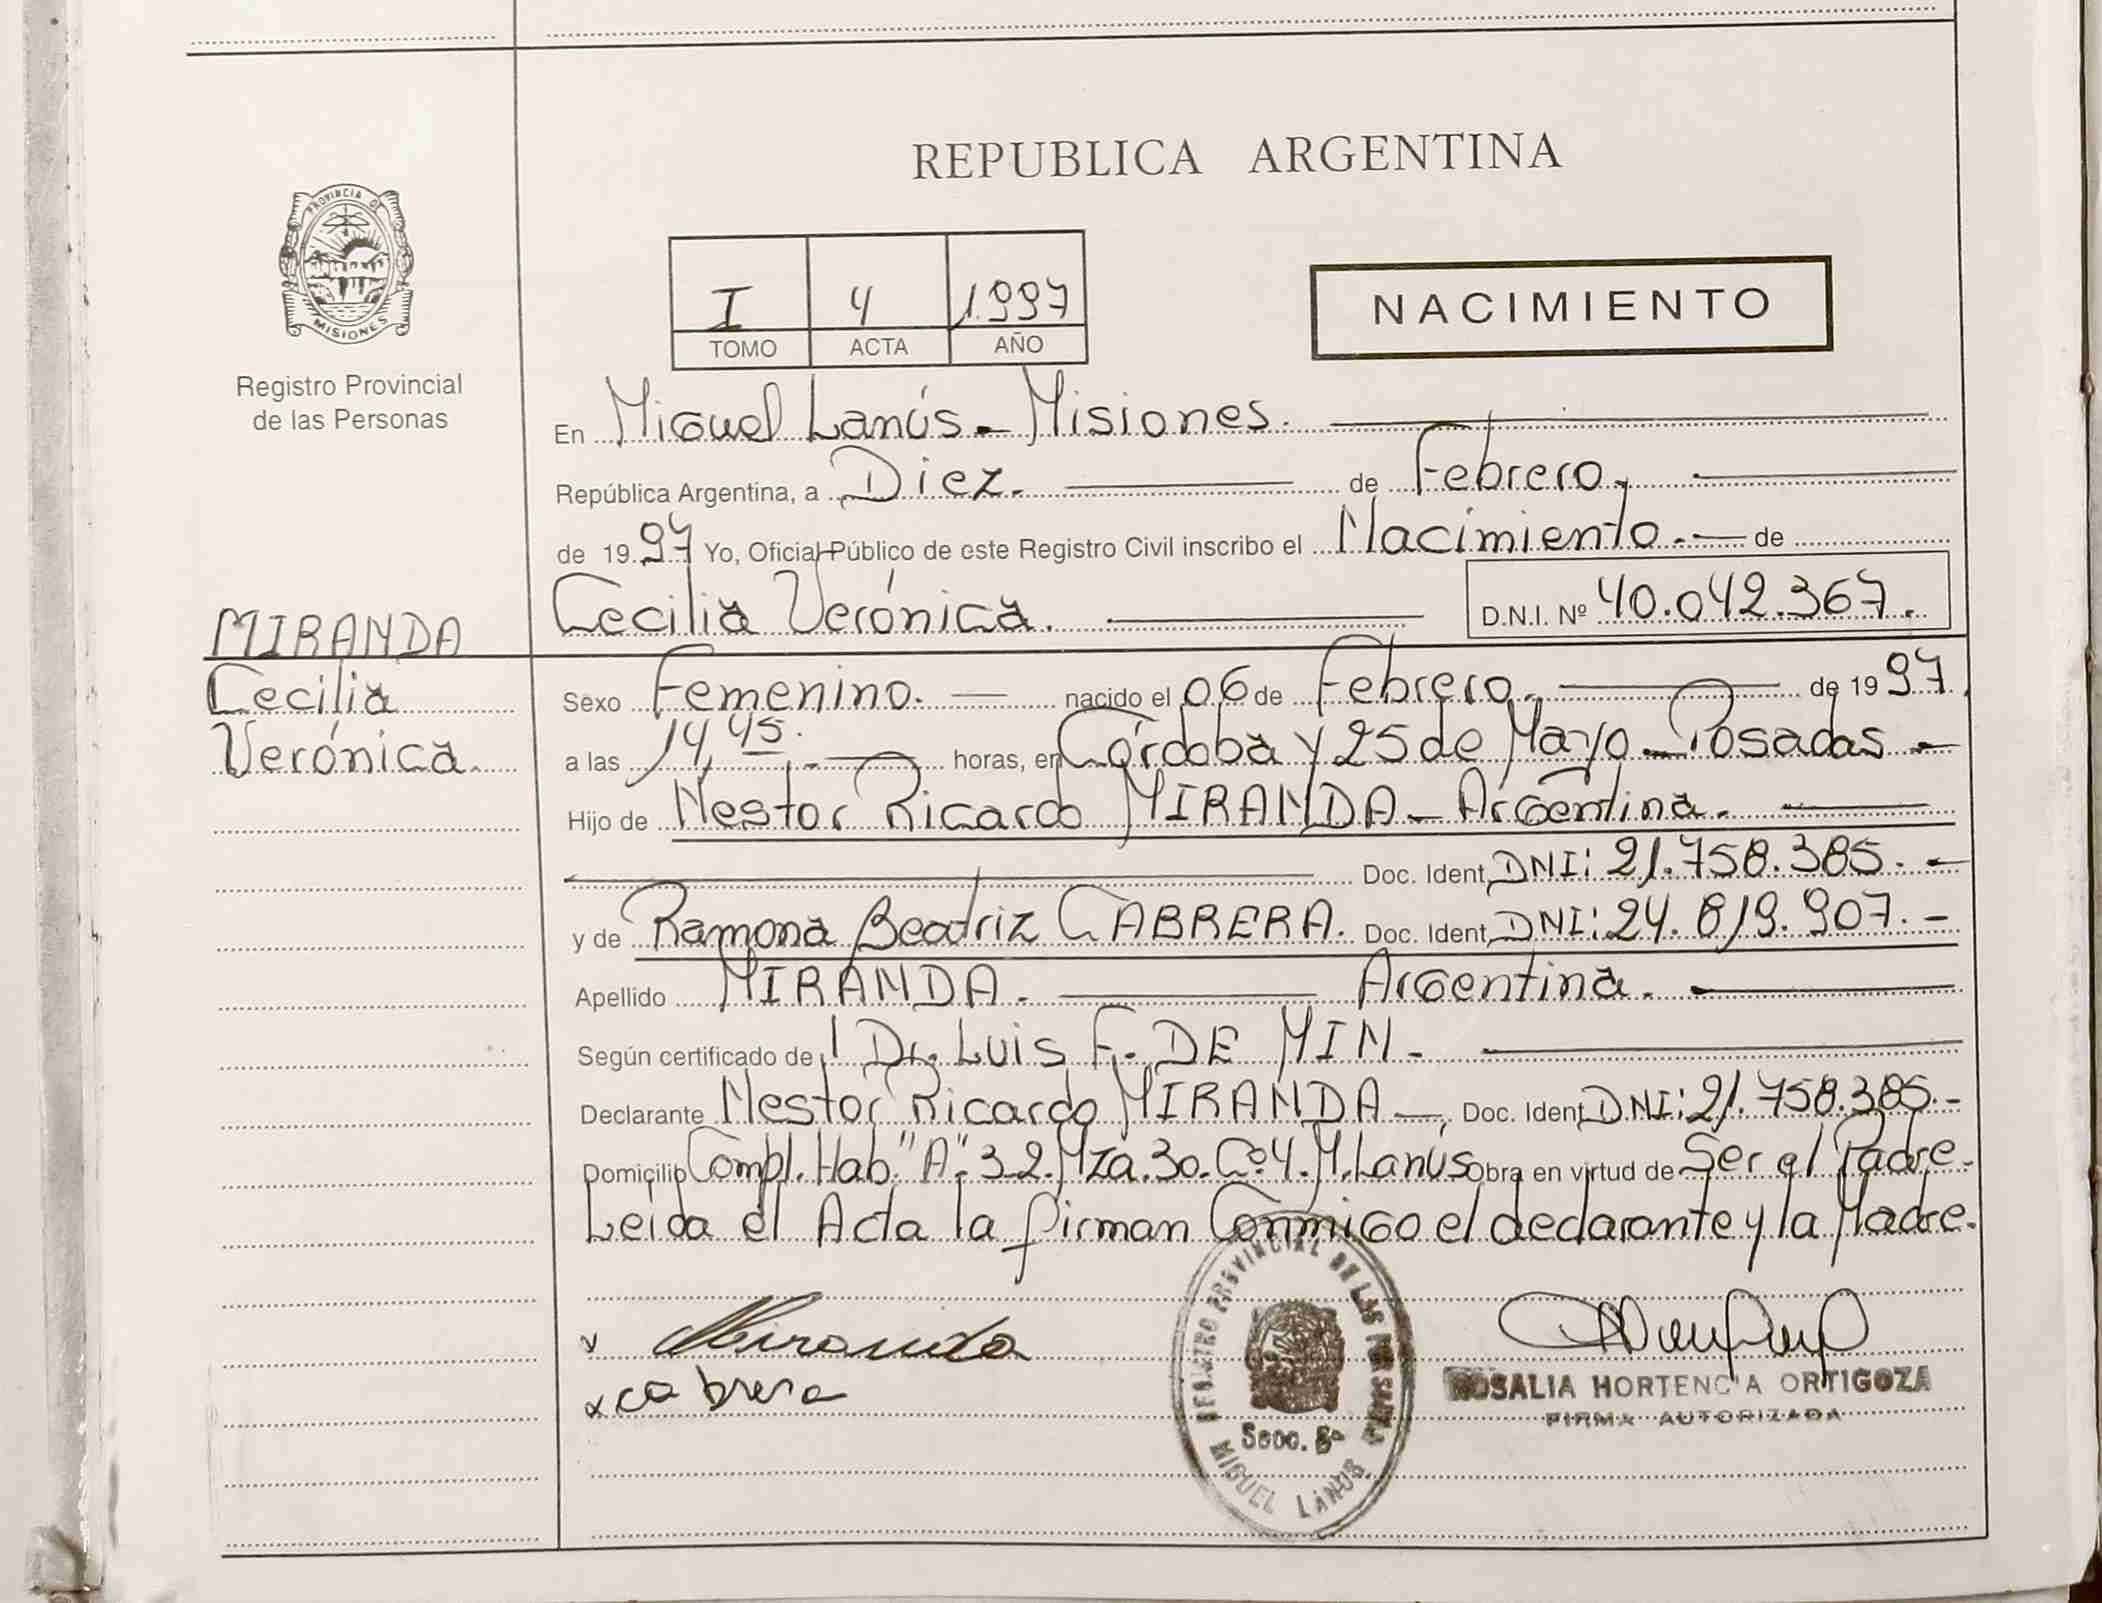 REPUBLICA ARGENTINA
PROVINCIA DE
MISIONES
Registro Provincial
de las Personas
I 4 1.997
TOMO ACTA AÑO
NACIMIENTO
En Miguel Lanús - Misiones.
República Argentina, a Diez. de Febrero.
de 1997 Yo, Oficial Público de este Registro Civil inscribo el Nacimiento. de
Cecilia Verónica. D.N.I. Nº 40.042.367.
MIRANDA
Cecilia
Verónica.
Sexo Femenino. nacido el 06 de Febrero. de 1997.
a las 14,45. horas, en Córdoba y 25 de Mayo - Posadas -
Hijo de Nestor Ricardo MIRANDA - Argentina.
Doc. Ident. DNI: 21.758.385. -
y de Ramona Beatriz CABRERA. Doc. Ident. DNI: 24.819.907. -
Apellido MIRANDA. Argentina.
Según certificado del Dr. Luis F. DE MIN -
Declarante Nestor Ricardo MIRANDA - Doc. Ident. DNI: 21.758.385. -
Domicilio Compl. Hab. "A" 3-2. Mza. 30. Cº4. M. Lanús Obra en virtud de Ser el Padre.
Leída el Acta la firman Conmigo el declarante y la Madre.
Miranda
x cabrera
REGISTRO PROVINCIAL DE LAS PERSONAS
Secc. 8ª
MIGUEL LANUS
ROSALIA HORTENCIA ORTIGOZA
FIRMA AUTORIZADA